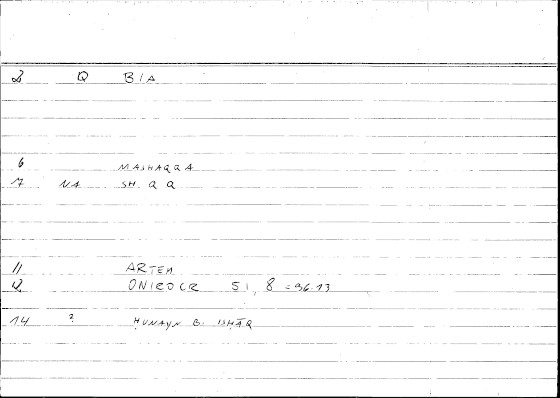 2 Q BIA
6 MASHAQQA
7 NA SH Q Q
11 ARTEM
12 ONIROCR 51, 8 = 96.13
14 ? ḤUNAYN B. ISḤĀQ